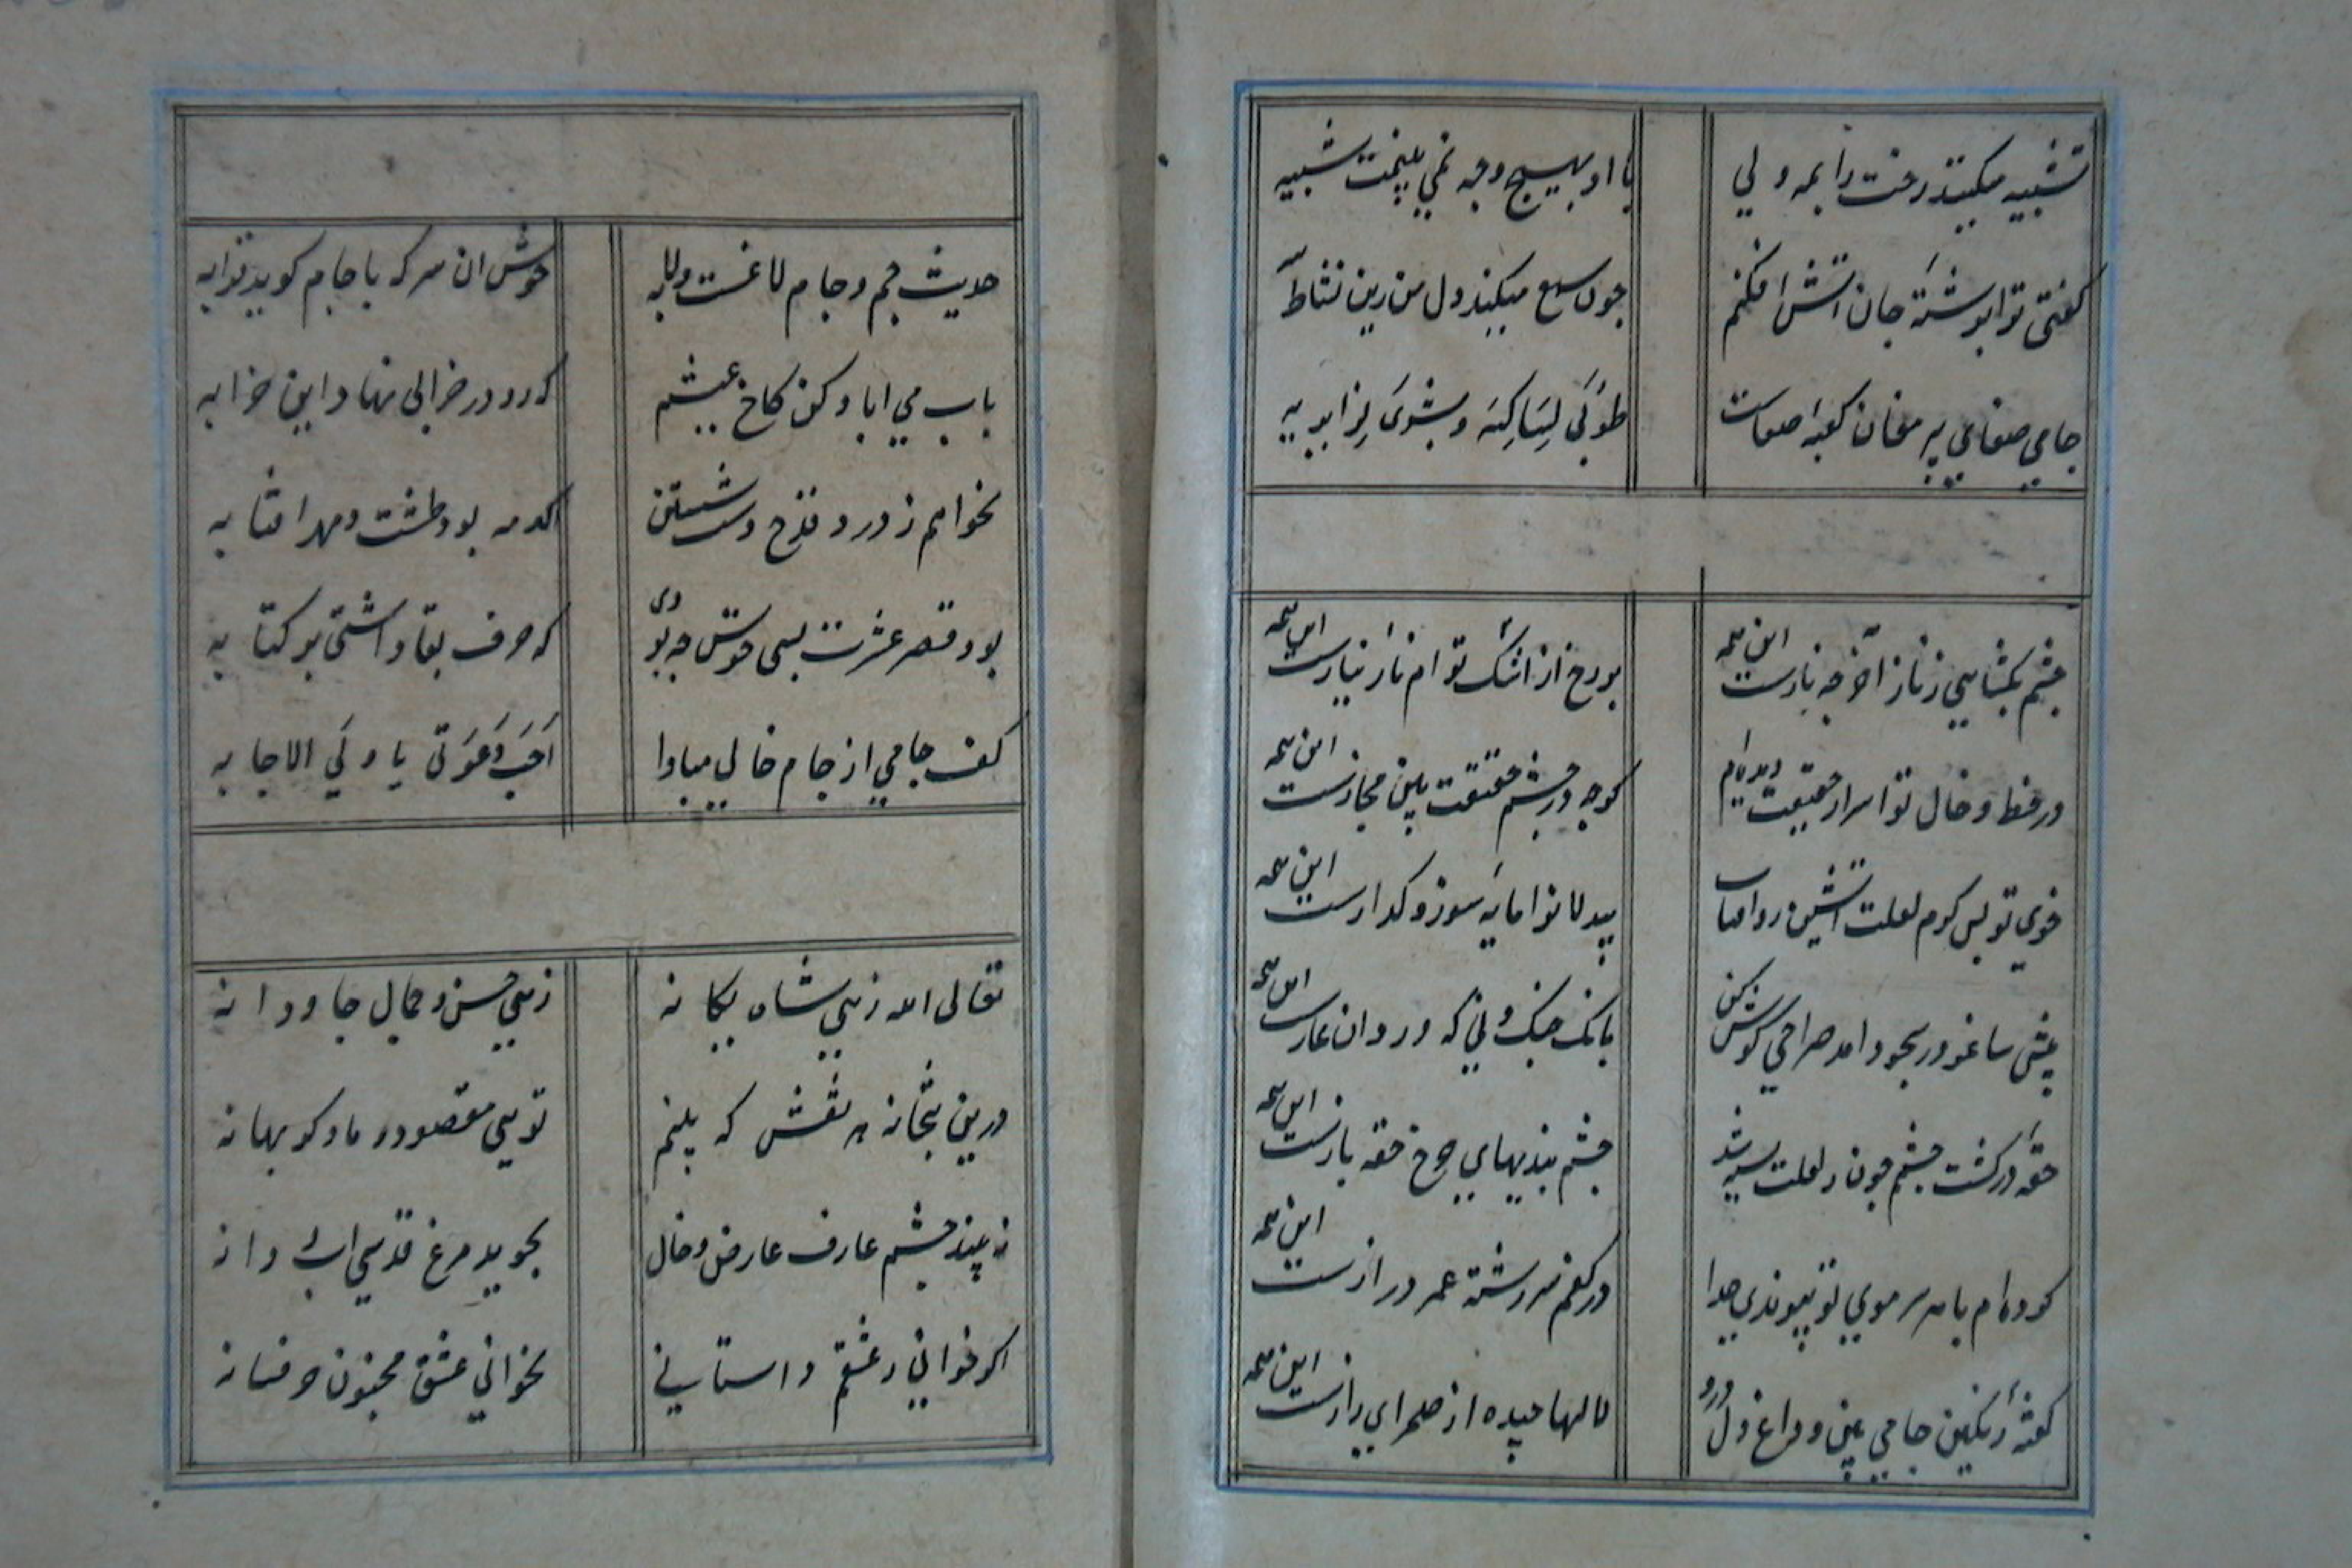 تشبیه میکنند رخت را بمه ولی
با او بهیچ وجه نمی بینمت شبیه
کفتی ترا برشتهٔ جان آتش افکنم
چون شمع میکند دل من زین نشاط
جامی صفای پیر مغان کعبه صفاست
طُوبَی لِسَاکِنِهِ وَ بُشرَی لِزایریه
چشم بکشایی ز ناز آخر چه نازست این همه
بر رخ از اشک توام نازِ نیازست این همه
در خط و خال تو اسرار حقیقت دیده‌ایم
کرچه در چشم حقیقت بین مجازست این همه
خوی تو بس کرم لعلت آتشین رو آفتاب
بیدلانرا مایهٔ سوز و کدازست این همه
پیش ساغر در سجود امد صراحی کوش کن
بانک چنک و نی که در دان نمازست این همه
حقه در کشت چشم چون ز لعلت سیر شد
چشم بندیهای چرخ حقه بازست این همه
کرده‌ام با هر سر موی تو پیوندی جدا
در کفم سررشتهٔ عمر درازست این همه
کفتهٔ رنکین جامی بین و داغ دل درو
لالها چیده از صحرای رازست این همه
حدیث خم و جام لاغست و لابه
خوش ان سر که با جام کوید ترابه
باب می اباد کن کاخ عیشم
که رو در خرابی نهاد این خرابه
نخواهم ز درد قدح دست شستن
کرم مه بود طشت و مهر افتابه
بود قصر عشرت بسی خوش چه بودی
که حرف بقا داشتی بر کتابه
کف جامی از جام خالی مبادا
اَجِب دَعوَتی یا وَلیَ الاجابه
تعالی الله زهی شاه یکانه
زهی حسن و جمال جاودانه
درین بتخانه هر نقش که بینم
تویی مقصود و ما و کو بهانه
نه بیند چشم عارف عارض و خال
نجوید مرغ قدسی اب و دانه
اکر خوانی ز عشقم داستانی
نخوانی عشق مجنون جز فسانه